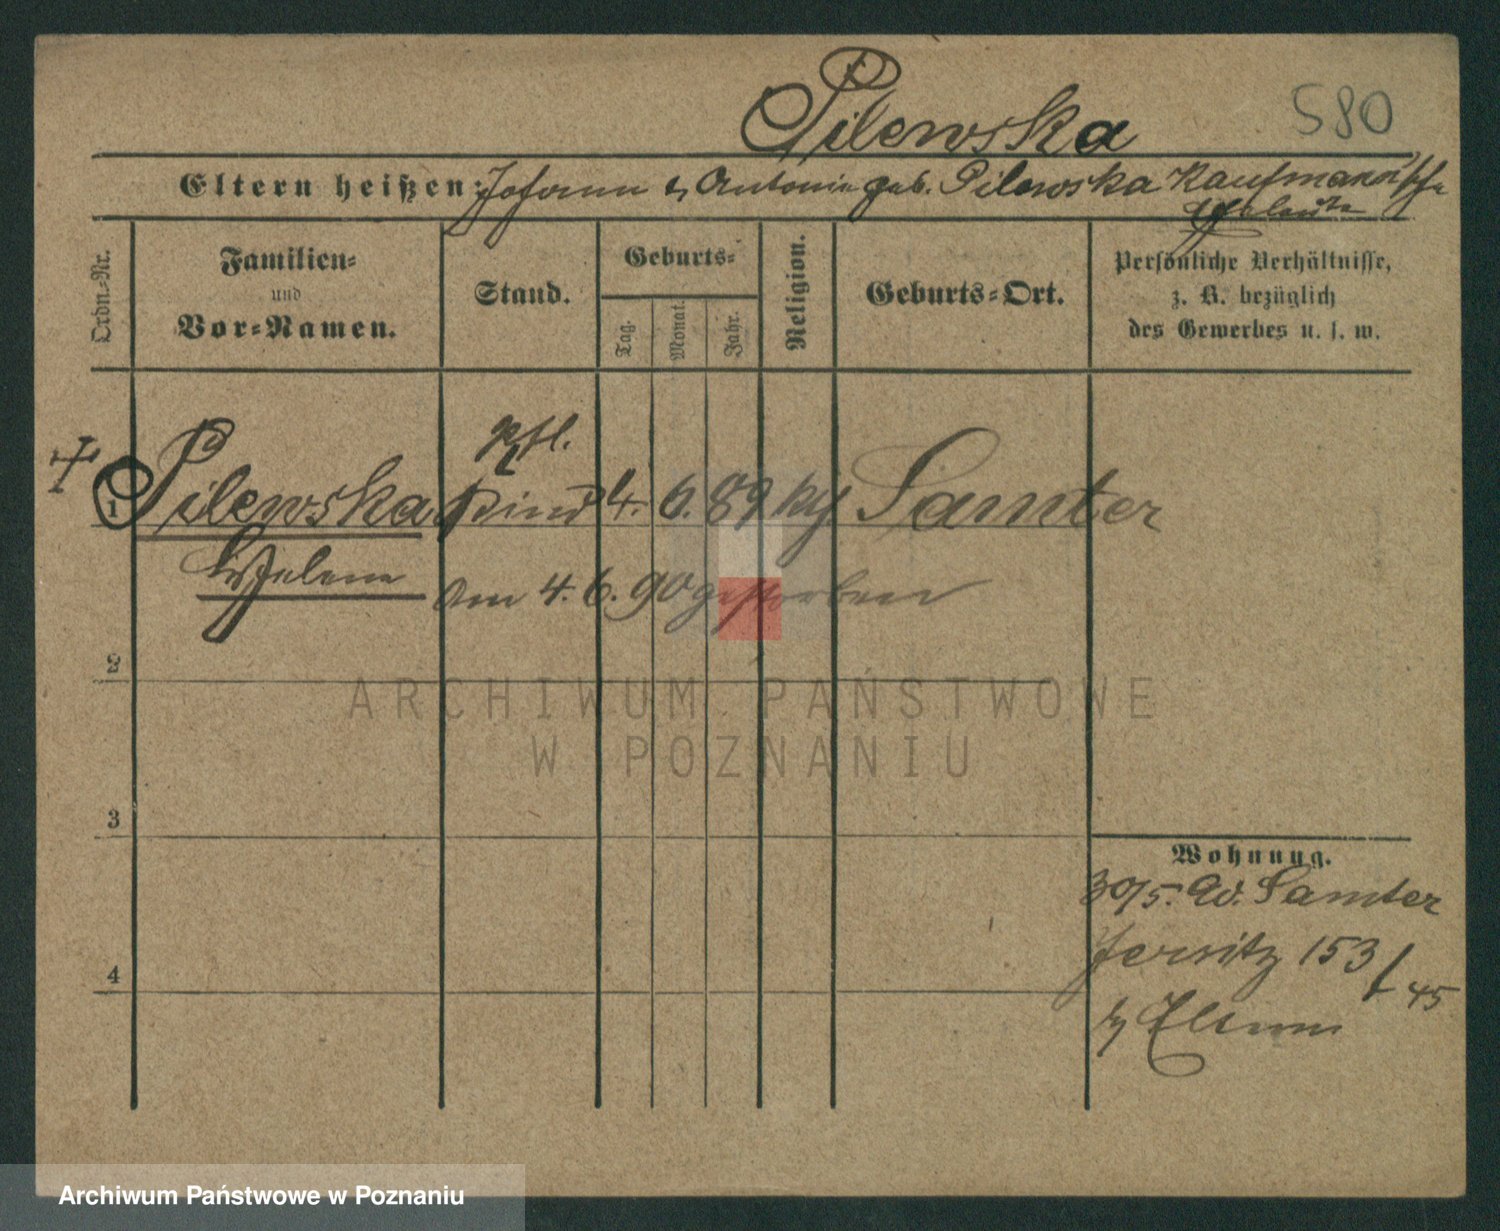 Pilewska
580
Eltern heißen: Johann & Antonie geb. Pilewska Kaufmann'sche
Eheleute
Ordn.-Nr.
Familien-
und
Vor-Namen.
Stand.
Geburts-
Tag.
Monat.
Jahr.
Religion.
Geburts-Ort.
Persönliche Verhältnisse,
z. B. bezüglich
des Gewerbes u. s. w.
1 Pilewska Kind 4. 6. 89 Samter
Helene am 4. 6. 90 gestorben
2
3
4
ARCHIWUM PAŃSTWOWE
W POZNANIU
Wohnung.
30/5. 90. Samter
Jersitz 153
45
Eltern
Archiwum Państwowe w Poznaniu